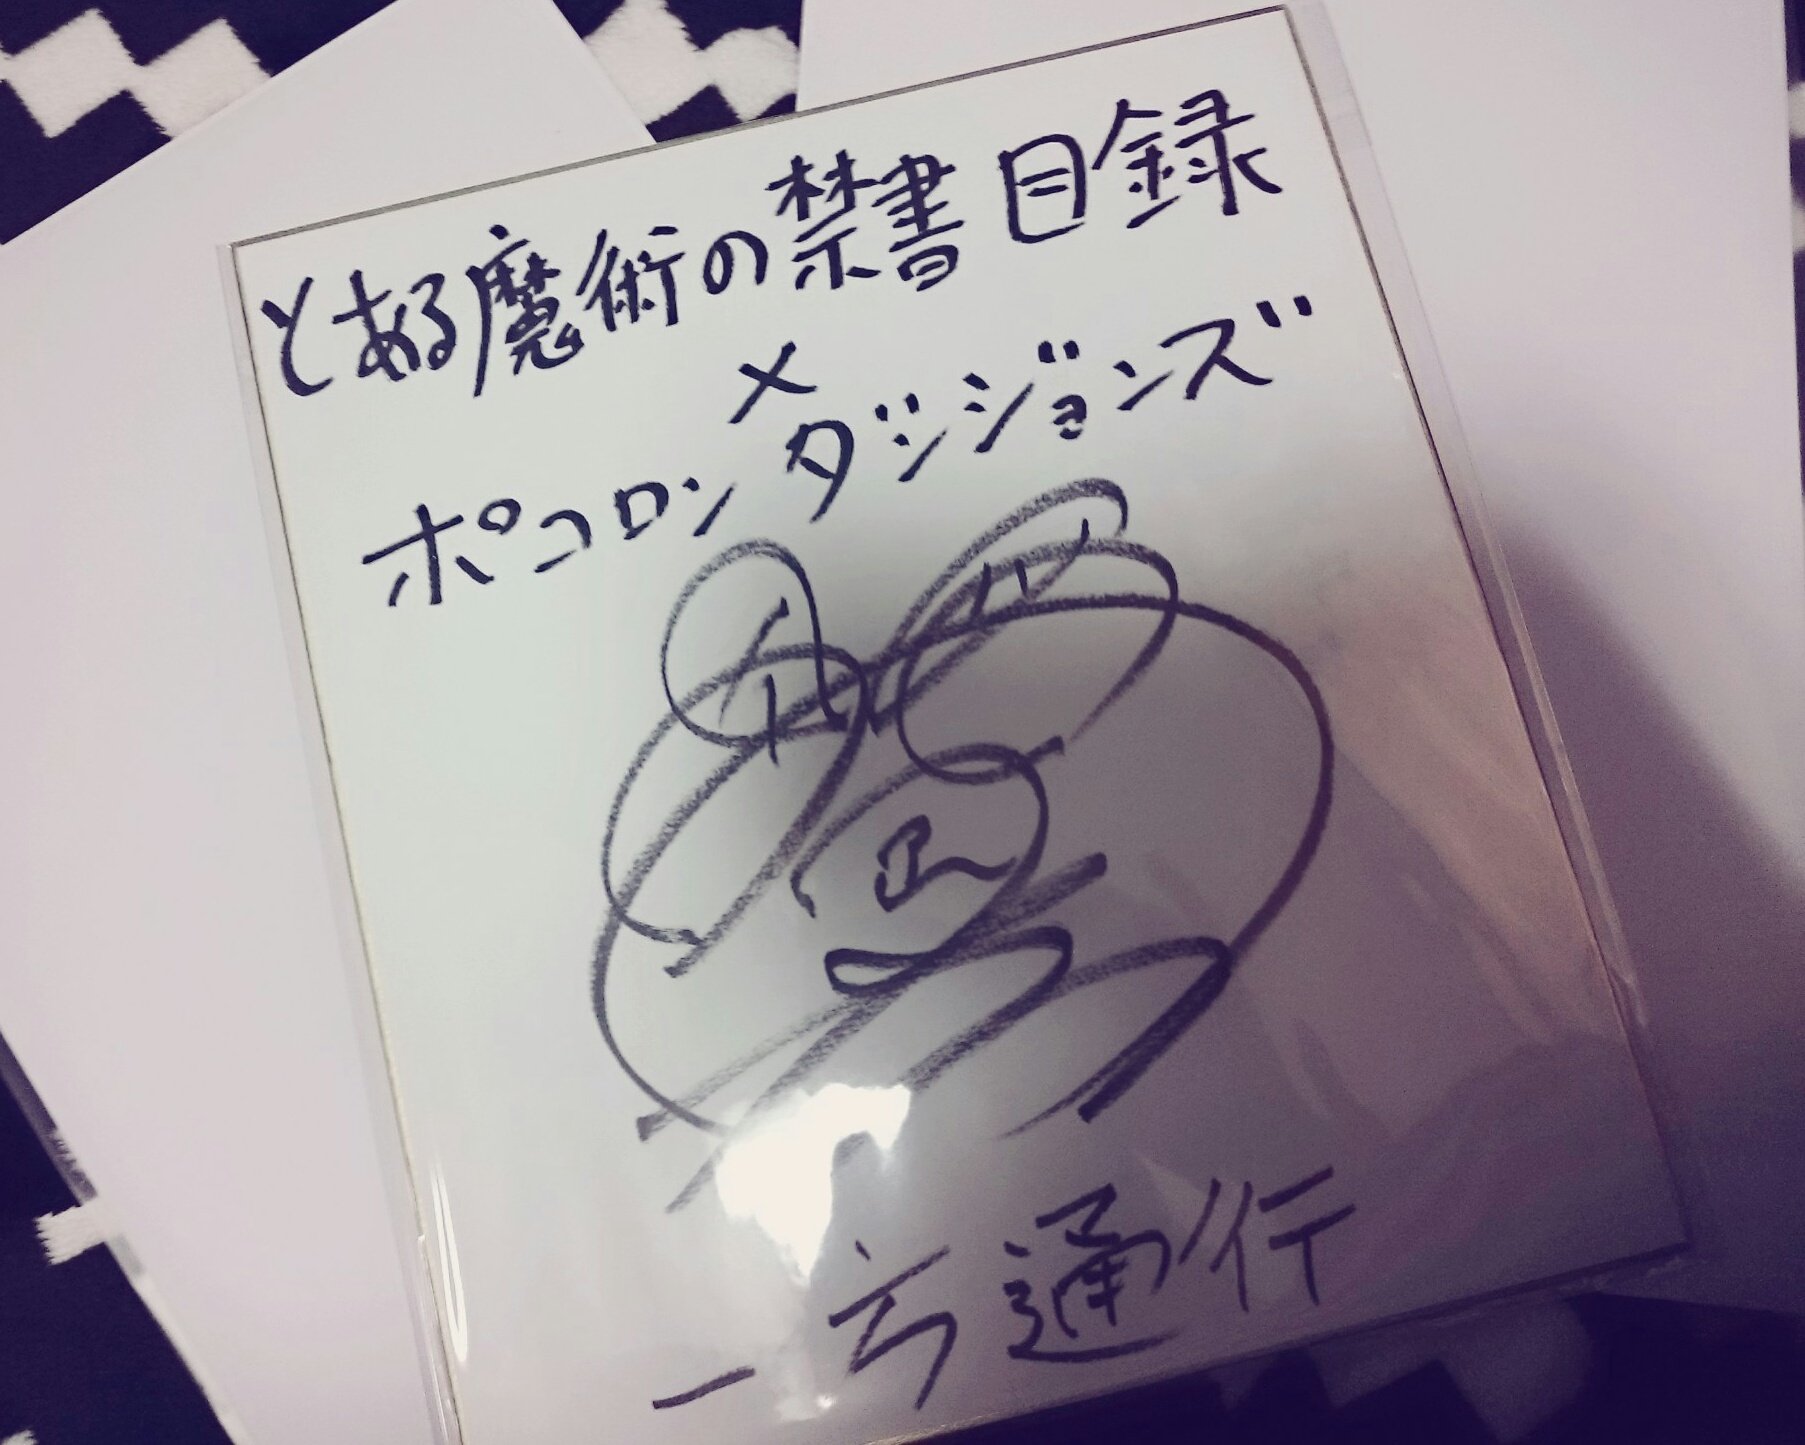 とある魔術の禁書目録
×
ポコロンダンジョンズ
一方通行